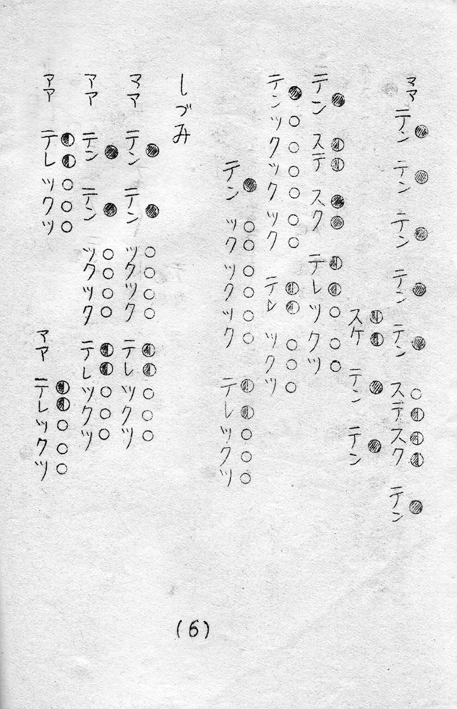 ママ テン テン テン テン テン ステスク テン
スケ テン テン
テン ステ スク テレツクツ
テン ツクツクツク テレ ツクツ
テン ツクツクツク テレツクツ
しづみ
ママ テン テン ツクツク テレツクツ
アア テン テン ツクツク テレツクツ
アア テレツクツ アア テレツクツ
(6)